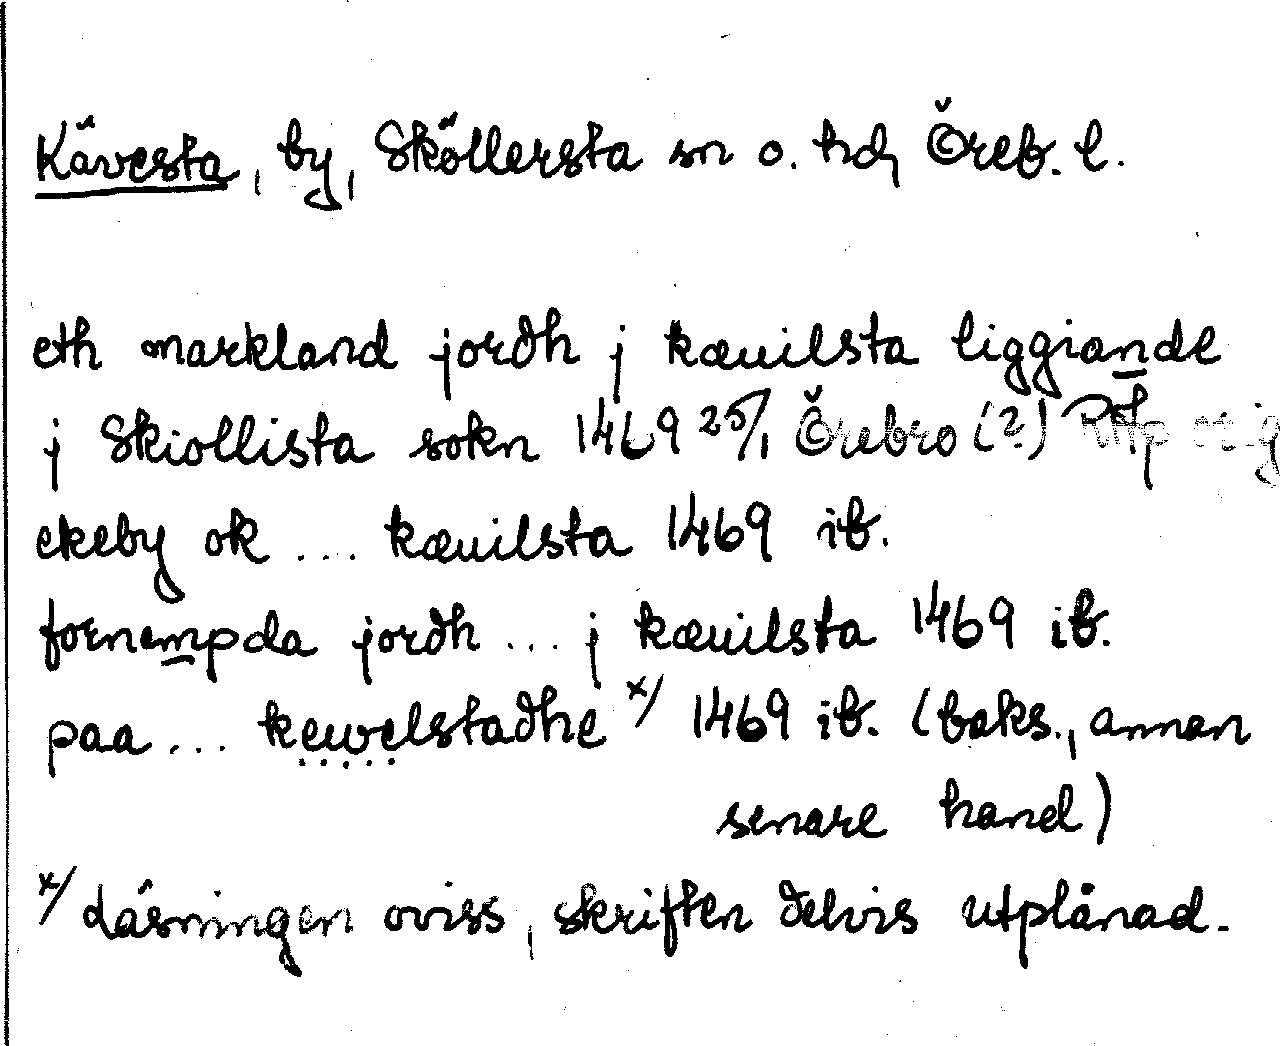 Kävesta, by, Sköllersta sn o. hd, Öreb. l.
eth markland jordh j kæuilsta liggiande
j Skiollista sokn 1469 25/1 Örebro (?) RAp orig
ekeby ok ... kæuilsta 1469 ib.
fornempda jordh ... j kæuilsta 1469 ib.
paa ... kewelstadhe x/ 1469 ib. (baks., annan
senare hand)
x/ Läsningen oviss, skriften delvis utplånad.